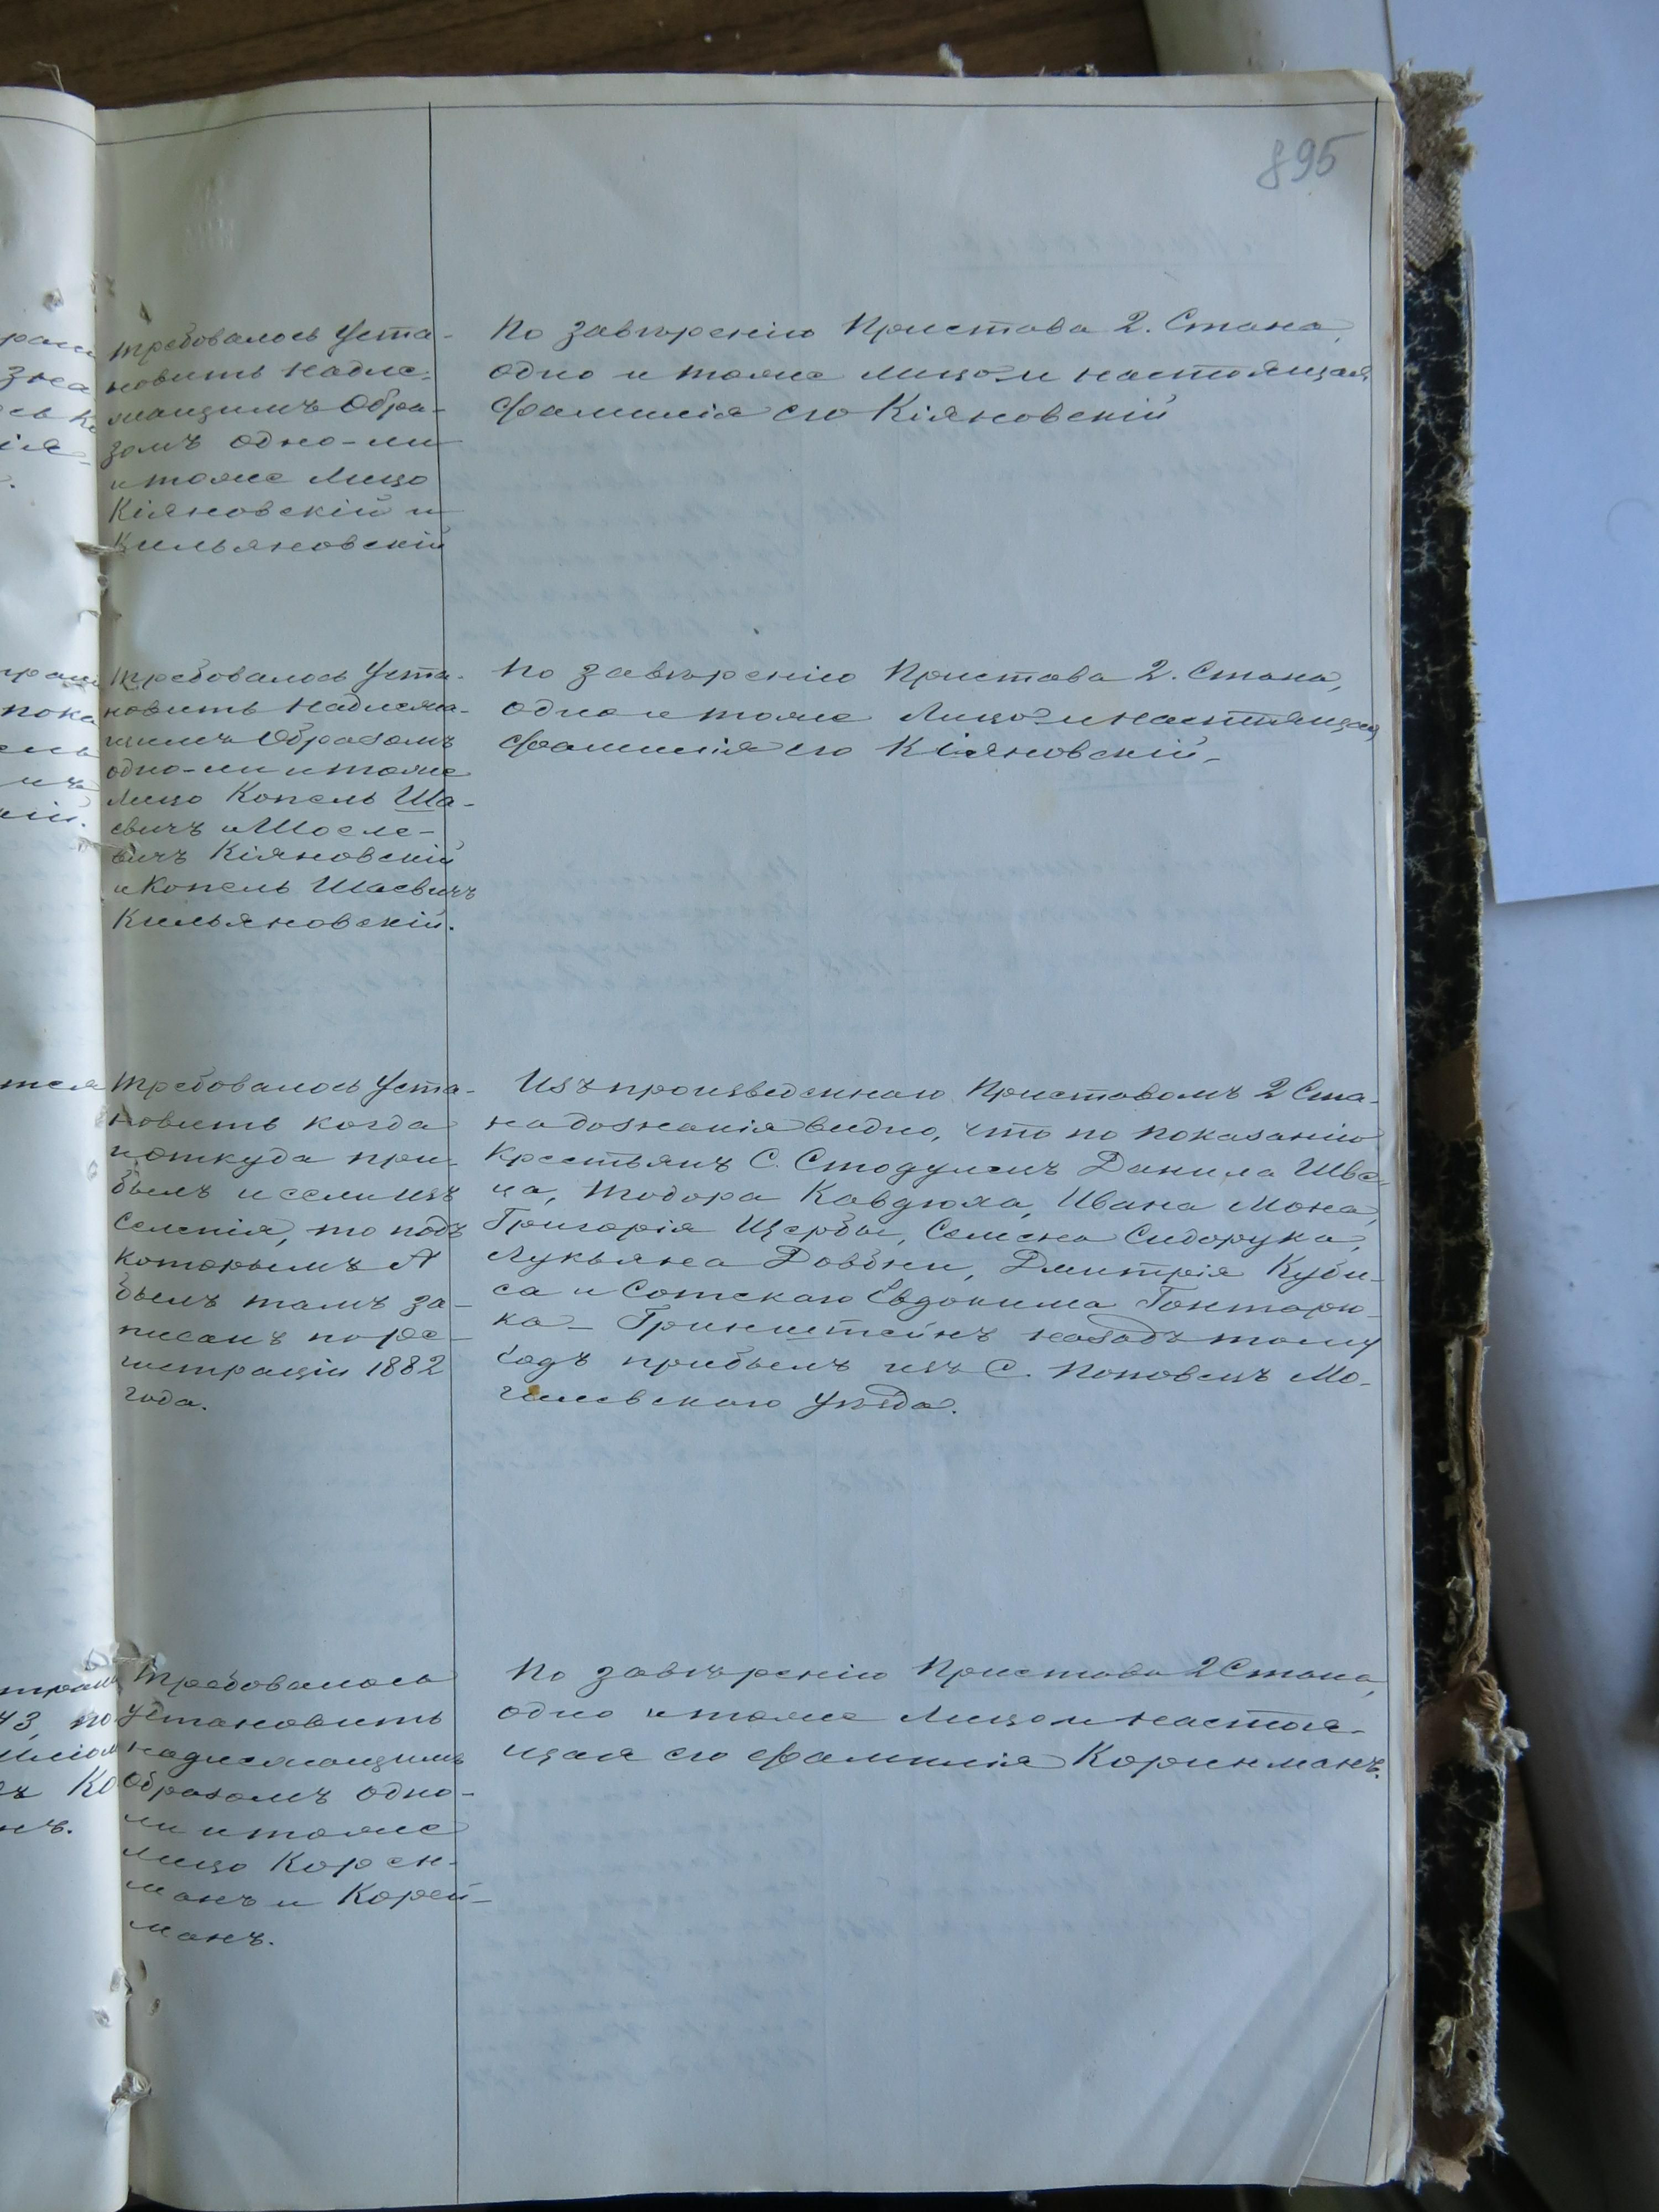 895
требовалось Уста-
новить надле-
жащимъ Обра-
зомъ одно-ли
и тоже Лицо
Кіяновскій и
Кильяновскій
По завѣренію Пристава 2. Стана,
одно и тоже лицо и настоящая
фамилія его Кіяновскій
требовалось Уста-
новить Надлежа-
щимъ Образомъ
одно-ли и тоже
Лицо Копель Ша-
евичъ и
вичъ Кіяновскій
и Копель Шаевичъ
Кильяновскій.
По завѣренію Пристава 2. Стана,
одно и тоже Лицо и настоящая
фамилія его Кіяновскій.
Требовалось Уста-
новить когда
и откуда при-
былъ и если изъ
Селенія, то подъ
которымъ №
былъ тамъ за-
писанъ по ре-
гистраціи 1882
года.
Изъ произведеннаго Приставомъ 2 Ста-
на дознанія видно, что по показанію
Крестьянъ С. Стодулецъ Данила Шве-
ца, Тодора Кавдюха, Ивана Мона,
Григорія Щербы, Семена Сидорука,
Лукьяна Довбни, Дмитрія Куби-
са и Сотскаго Евдокима Гонтарю-
ка – Гринштейнъ назадъ тому
годъ прибылъ изъ С. Поповецъ Мо-
гилевскаго Уѣзда.
Требовалось
Установить
надлежащимъ
Образомъ одно-
ли и тоже
лицо Корен-
манъ и Корей-
манъ.
По завѣренію Пристава 2 Стана,
одно и тоже Лицо и настоя-
щая его фамилія Коринманъ.